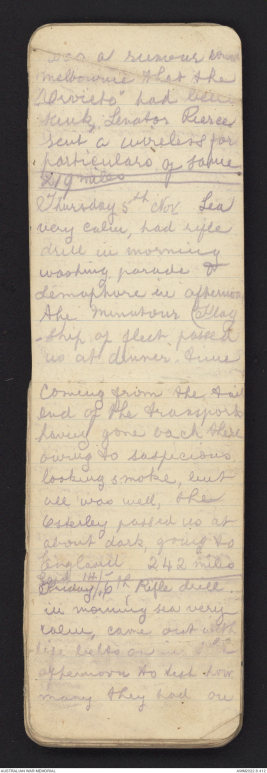 was a rumour
Melbourne that the
"Orvieto" had been
sunk, Senator Pearce
sent a wireless for
particulars of same
219 miles
Thursday 5th Nov Sea
very calm, had rifle
drill in morning
washing parade &
semaphore in afternoon
the Minatour (Flag
-ship of fleet passed
us at dinner time
coming from the tail
end of the transports
having gone back there
owing to suspicious
looking smoke, but
all was well, the
Osterley passed us at
about dark, going to
England 242 miles
Friday 6th Rifle drill
in morning sea very
calm, came out with
life belts on in the
afternoon to test how
many they had on
AUSTRALIAN WAR MEMORIAL